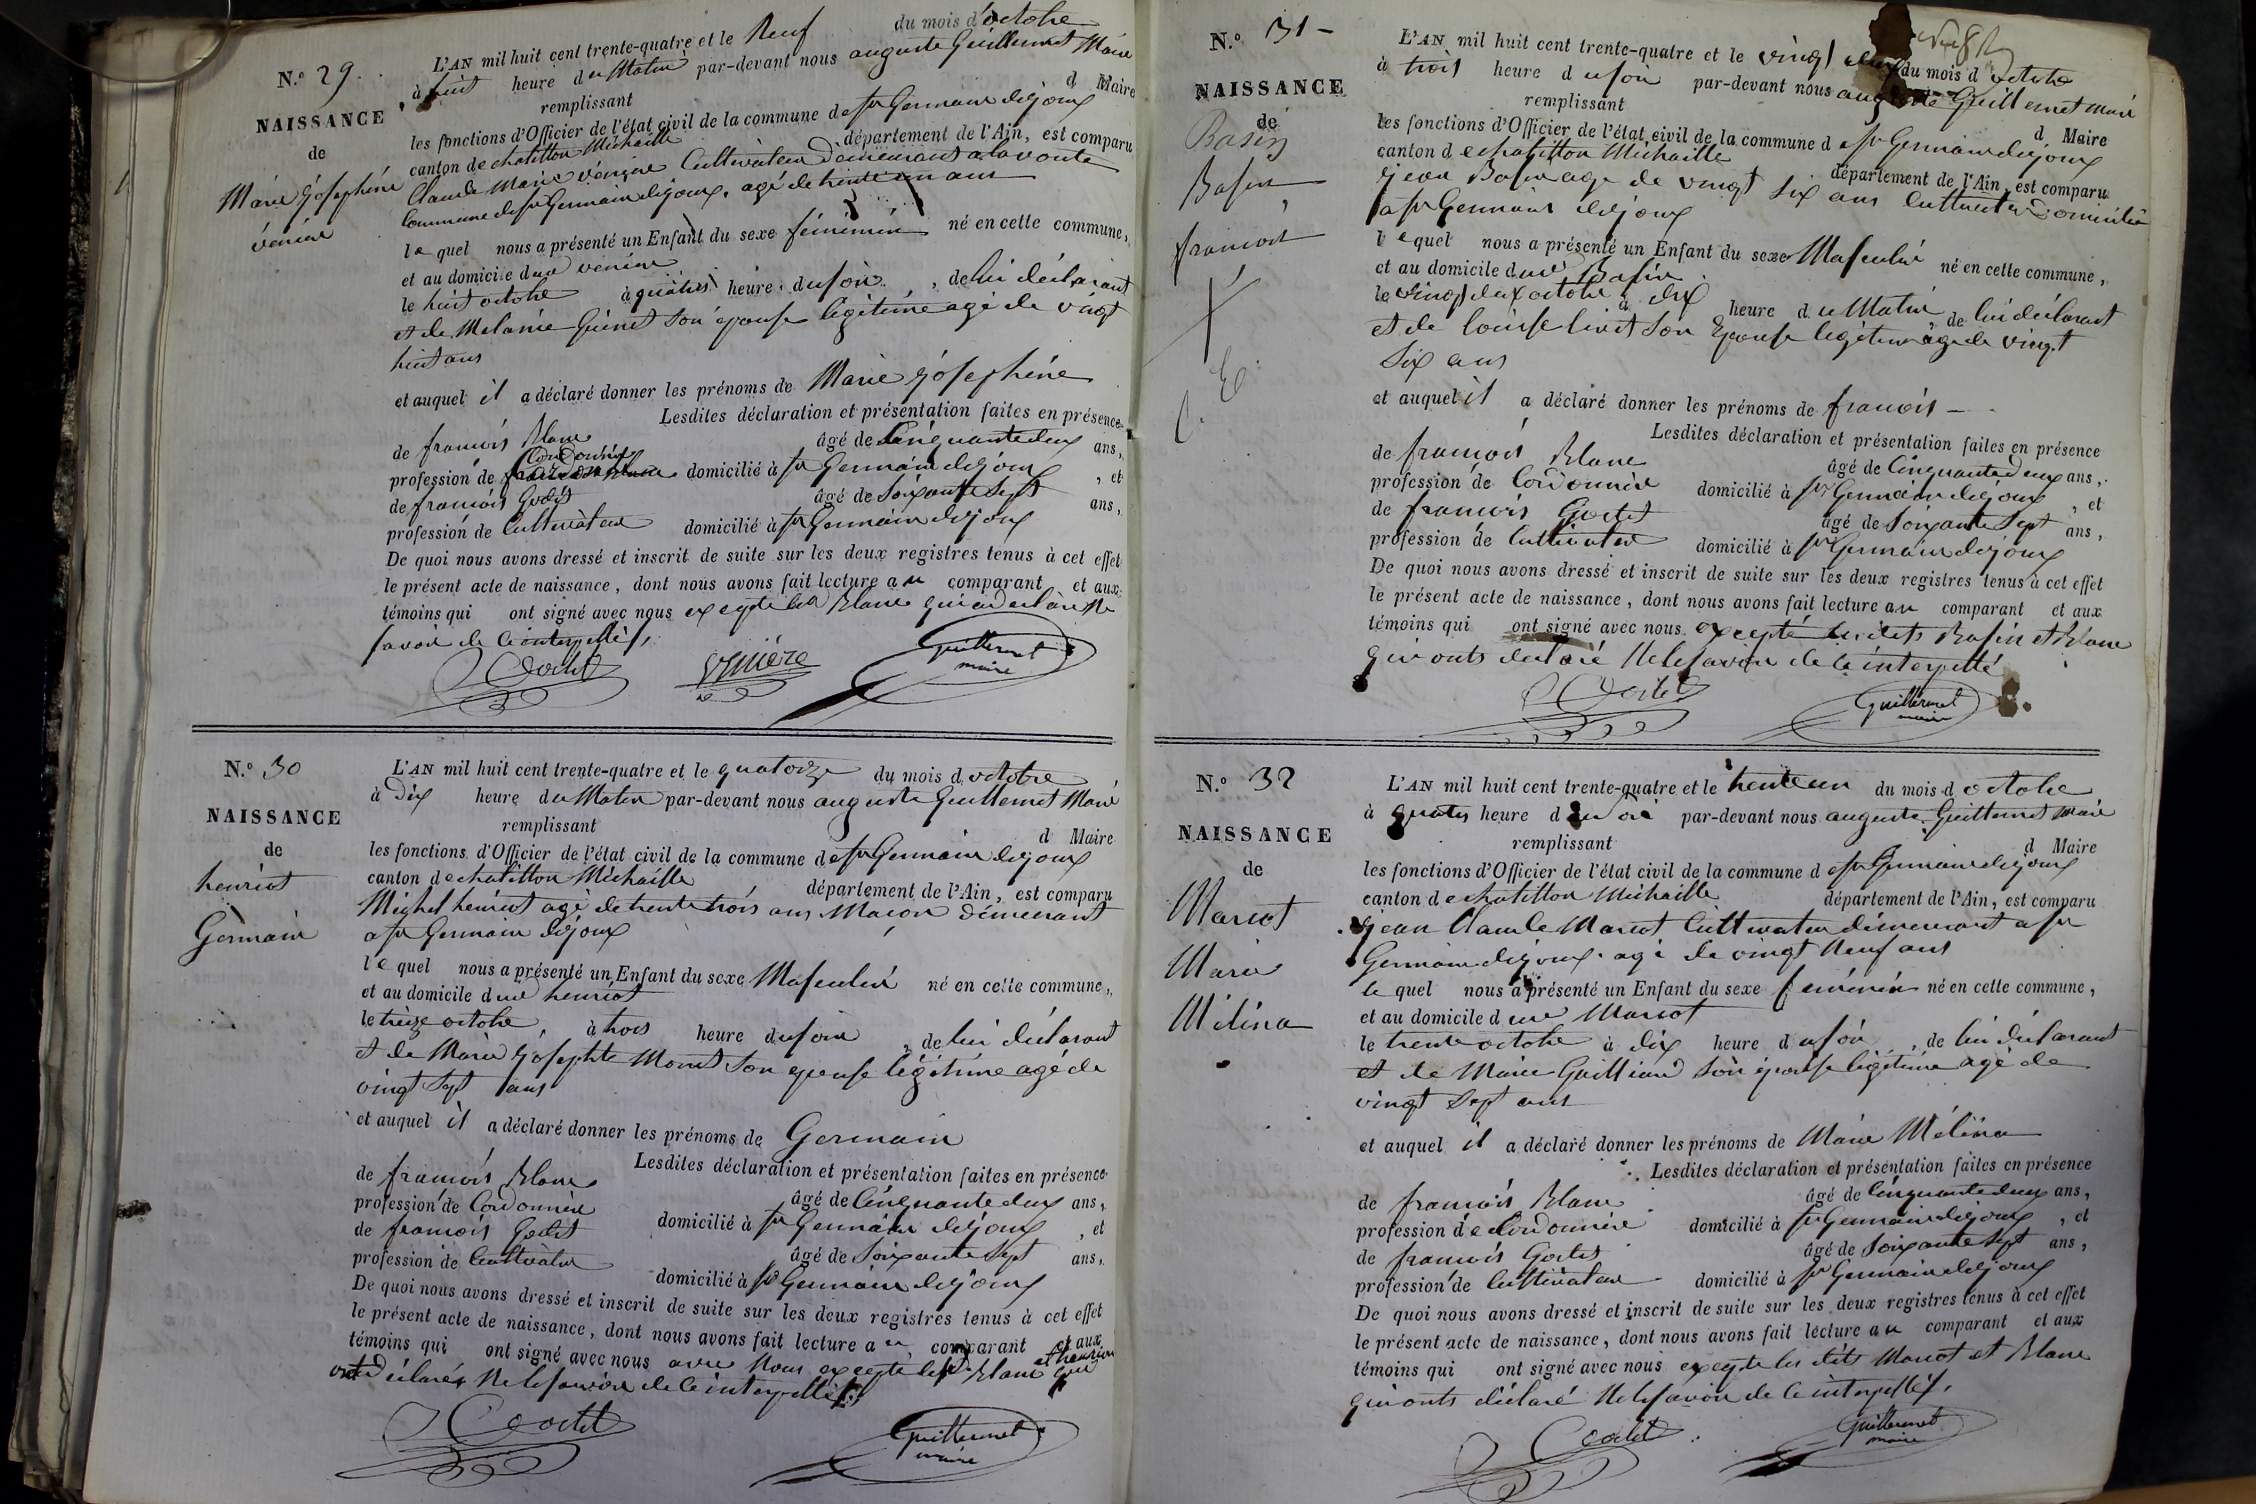 N.º 29.
NAISSANCE
de
Marie Joséphine
vénière
L'AN mil huit cent trente-quatre et le Neuf du mois d'octobre
à huit heure du Matin par-devant nous auguste Guillermet Maire
remplissant d Maire
les fonctions d'Officier de l'état civil de la commune de st Germain dejoux
canton de chatillon Michaille département de l'Ain, est comparu
Claude Marie vénière Cultivateur demeurant a la voute
Commune de st Germain dejoux, agé de trente un ans
lequel nous a présenté un Enfant du sexe féminin né en cette commune,
et au domicile dud venière
le huit octobre à quatre heure du soir, de lui déclarant
et de Melanie Guinet son épouse légitime agé de vingt
huit ans
et auquel il a déclaré donner les prénoms de Marie Joséphine
Lesdites déclaration et présentation faites en présence
de francois Blanc âgé de Cinquante deux ans,
profession de Cordonnier domicilié à st Germain dejoux, et
de francois Godet âgé de soixante sept ans,
profession de Cultivateur domicilié à st Germain dejoux
De quoi nous avons dressé et inscrit de suite sur les deux registres tenus à cet effet
le présent acte de naissance, dont nous avons fait lecture au comparant et aux
témoins qui ont signé avec nous excepté led Blanc qui a declaré Ne
savoir de ce interpellés,
Godet vénière Guillermet
maire
N.º 30
NAISSANCE
de
henriot
Germain
L'AN mil huit cent trente-quatre et le quatorze du mois d octobre
à Dix heure du Matin par-devant nous auguste Guillermet Maire
remplissant d Maire
les fonctions d'Officier de l'état civil de la commune de st Germain dejoux
canton de chatillon Michaille département de l'Ain, est comparu
Michel henriot agé de trente trois ans Macon démeurant
a st Germain dejoux
lequel nous a présenté un Enfant du sexe Masculin né en cette commune,
et au domicile dud henriot
le treize octobre, à trois heure du soir, de lui déclarant
et de Marie Josephte Monet son epouse légitime agé de
vingt sept ans
et auquel il a déclaré donner les prénoms de Germain
Lesdites déclaration et présentation faites en présence
de francois Blanc âgé de Cinquante deux ans,
profession de Cordonnier domicilié à st Germain dejoux, et
de francois Godet âgé de soixante sept ans,
profession de Cultivateur domicilié à st Germain dejoux
De quoi nous avons dressé et inscrit de suite sur les deux registres tenus à cet effet
le présent acte de naissance, dont nous avons fait lecture au comparant et aux
témoins qui ont signé avec nous avec Nous excepté lesd Blanc et henriot qui
ont Déclarés Ne le savoir de ce interpellés
Godet Guillermet
maire
N.º 31 -
NAISSANCE
de
Basin
Basin
francois
L'AN mil huit cent trente-quatre et le vingt deux du mois d octobre
à trois heure du soir par-devant nous auguste Guillermet maire
remplissant d Maire
les fonctions d'Officier de l'état civil de la commune de st Germain dejoux
canton de chatillon Michaille département de l'Ain, est comparu
jean Basin age de vingt six ans cultivateur Domicilié
a st Germain dejoux
lequel nous a présenté un Enfant du sexe Masculin né en cette commune,
et au domicile dud Basin
le vingt deux octobre à dix heure du Matin, de lui déclarant
et de louise livet son Epouse legitime age de vingt
six ans
et auquel il a déclaré donner les prénoms de francois -
Lesdites déclaration et présentation faites en présence
de francois Blanc âgé de Cinquante deux ans,
profession de Cordonnier domicilié à st Germain dejoux, et
de francois Godet âgé de soixante sept ans,
profession de Cultivateur domicilié à st Germain dejoux
De quoi nous avons dressé et inscrit de suite sur les deux registres tenus à cet effet
le présent acte de naissance, dont nous avons fait lecture au comparant et aux
témoins qui ont signé avec nous excepté lesdits Basin et Blanc
qui onts declaré Ne le savoir de ce interpellé
Godet Guillermet
maire
N.º 32
NAISSANCE
de
Marcot
Marie
Mélina
L'AN mil huit cent trente-quatre et le trente un du mois d octobre
à quatre heure du soir par-devant nous auguste Guillermet maire
remplissant d Maire
les fonctions d'Officier de l'état civil de la commune de st Germain dejoux
canton de chatillon Michaille département de l'Ain, est comparu
jean Claude Marcot Cultivateur démeurant a st
Germain dejoux agé de vingt Neuf ans
lequel nous a présenté un Enfant du sexe féminin né en cette commune,
et au domicile dud Marcot
le trente octobre à dix heure du soir, de lui déclarant
et de Marie Gailliard son épouse légitime agé de
vingt sept ans
et auquel il a déclaré donner les prénoms de Marie Mélina
Lesdites déclaration et présentation faites en présence
de francois Blanc âgé de Cinquante deux ans,
profession de Cordonnier domicilié à st Germain dejoux, et
de francois Godet âgé de soixante sept ans,
profession de Cultivateur domicilié à st Germain dejoux
De quoi nous avons dressé et inscrit de suite sur les deux registres tenus à cet effet
le présent acte de naissance, dont nous avons fait lecture au comparant et aux
témoins qui ont signé avec nous excepté les dits Marcot et Blanc
qui onts déclaré Ne le savoir de ce interpellés,
Godet Guillermet
maire